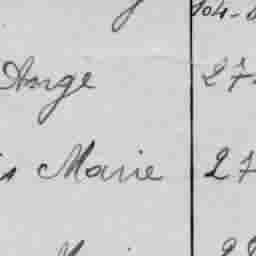 104-
Ange 27
s Marie 27